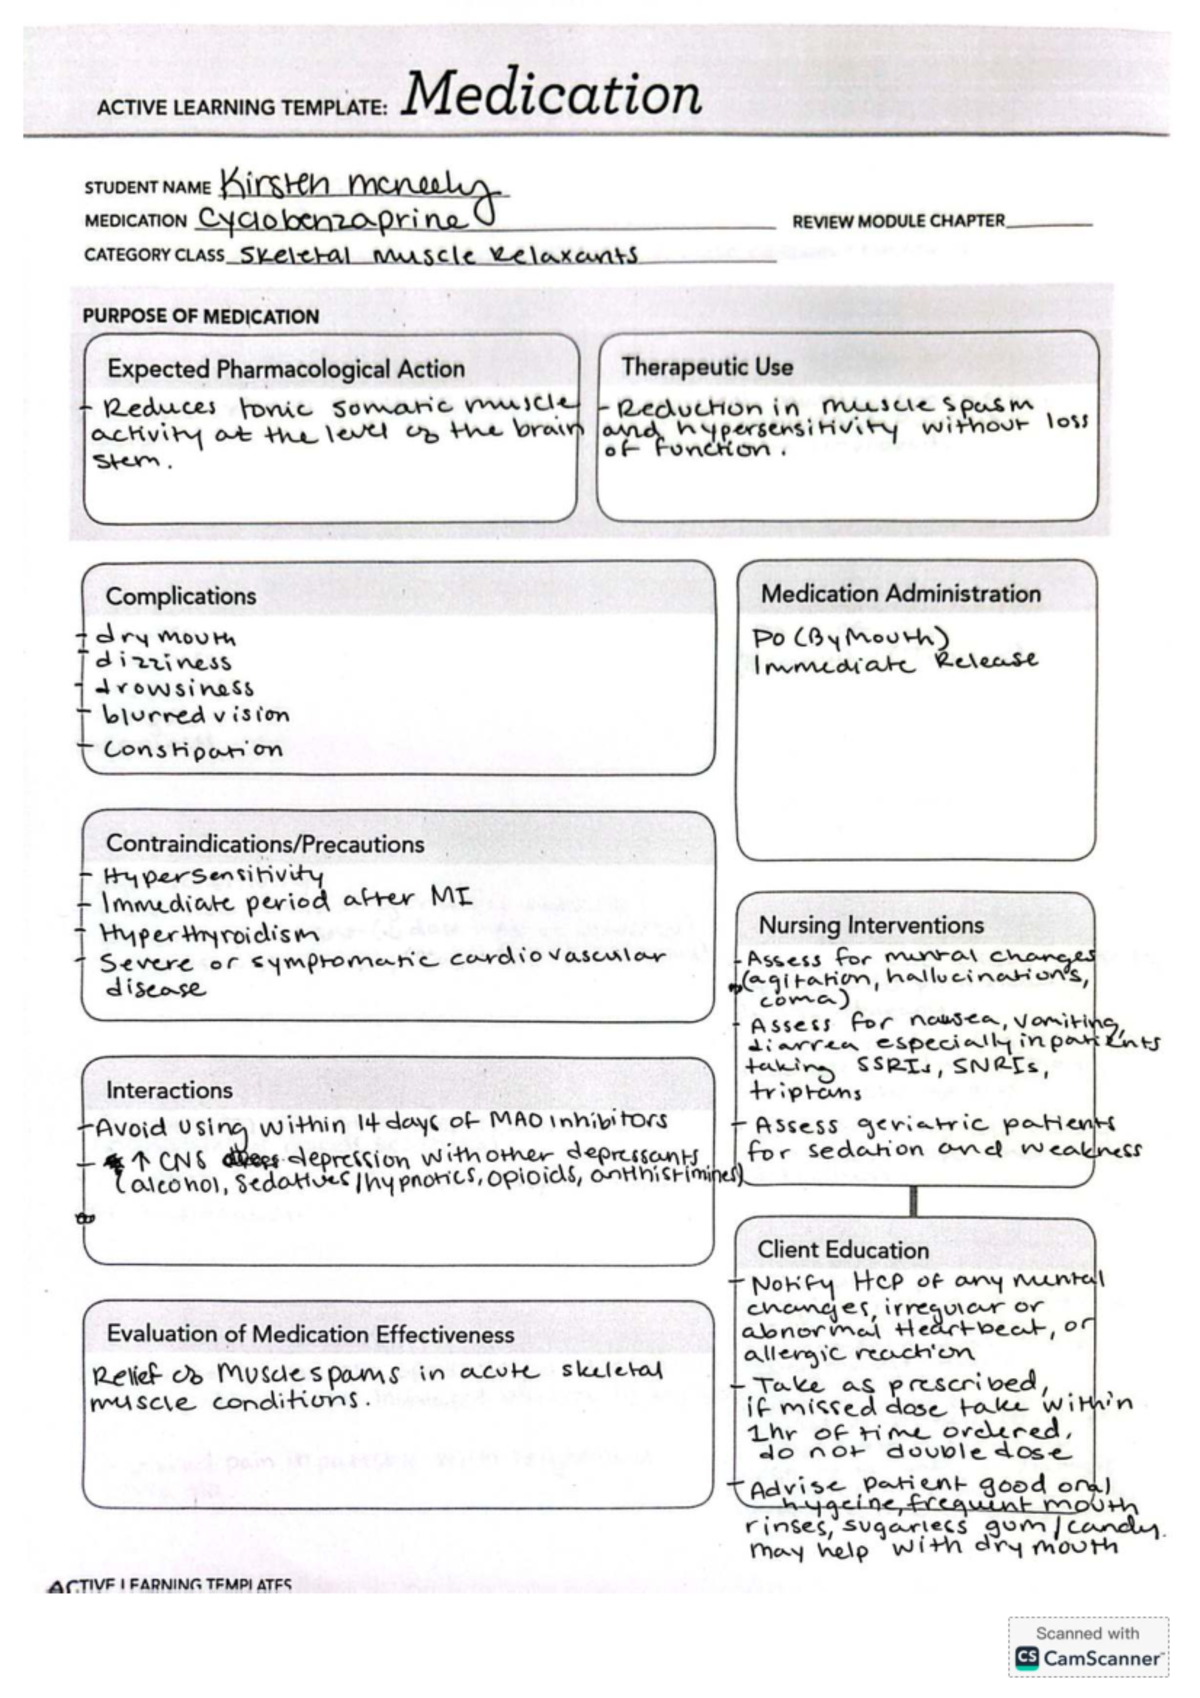 ACTIVE LEARNING TEMPLATE: Medication
STUDENT NAME Kirsten mcneely
MEDICATION Cyclobenzaprine
REVIEW MODULE CHAPTER
CATEGORY CLASS Skeletal Muscle Relaxants
PURPOSE OF MEDICATION
Expected Pharmacological Action
- Reduces tonic somatic muscle
activity at the level of the brain
stem.
Therapeutic Use
- Reduction in muscle spasm
and hypersensitivity without loss
of function.
Complications
- dry mouth
- dizziness
- drowsiness
- blurred vision
- Constipation
Medication Administration
PO (By Mouth)
Immediate Release
Contraindications/Precautions
- Hypersensitivity
- Immediate period after MI
- Hyperthyroidism
- Severe or symptomatic cardiovascular
disease
Nursing Interventions
- Assess for mental changes
(agitation, hallucinations,
coma)
- Assess for nausea, vomiting,
diarrea especially in patients
taking SSRIs, SNRIs,
triptans
- Assess geriatric patients
for sedation and weakness
Interactions
- Avoid using within 14 days of MAO inhibitors
- ↑ CNS depression with other depressants
(alcohol, sedatives/hypnotics, opioids, antihistimines)
Client Education
- Notify HCP of any mental
changes, irregular or
abnormal Heartbeat, or
allergic reaction
- Take as prescribed,
if missed dose take within
1hr of time ordered,
do not double dose
- Advise patient good oral
hygeine, frequent mouth
rinses, sugarless gum/candy
may help with dry mouth
Evaluation of Medication Effectiveness
Relief of Muscle spams in acute skeletal
muscle conditions.
ACTIVE LEARNING TEMPLATES
Scanned with
CS CamScanner